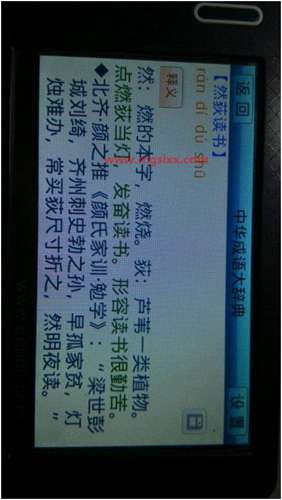 返回
中华成语大辞典
设置
【然荻读书】
rán dí dú shū
释义
然：燃的本字，燃烧。荻：芦苇一类植物。
点燃荻当灯，发奋读书。形容读书很勤苦。
◆北齐·颜之推《颜氏家训·勉学》：“梁世彭
城刘绮，齐州刺史勃之孙，早孤家贫，灯
烛难办，常买荻尺寸折之，然明夜读。”